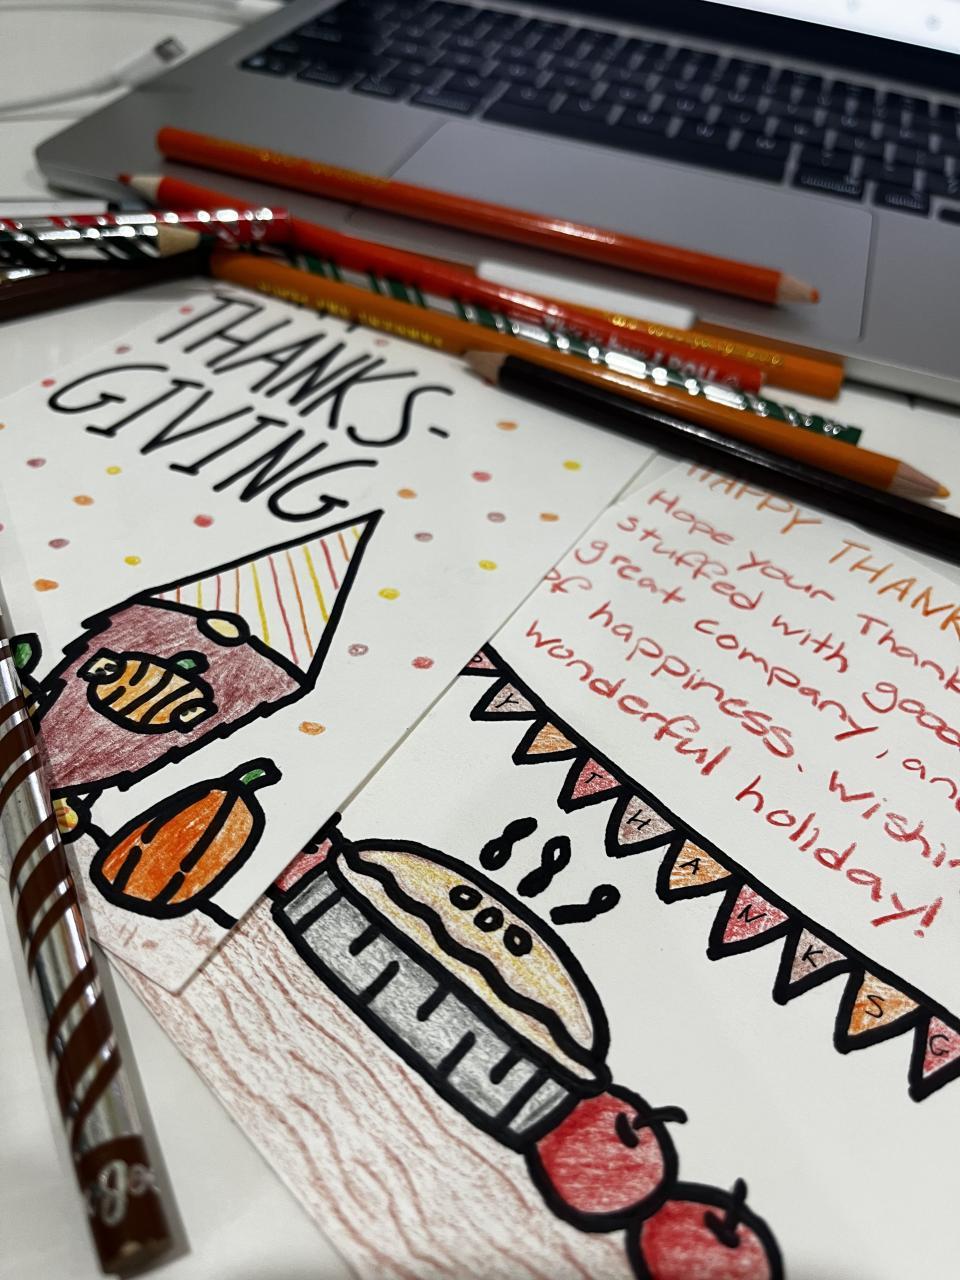 THANKS-
GIVING
HAPPY THANK
Hope your Thank
stuffed with good
great company, an
of happiness. Wishin
wonderful holiday!
P Y T H A N K S G